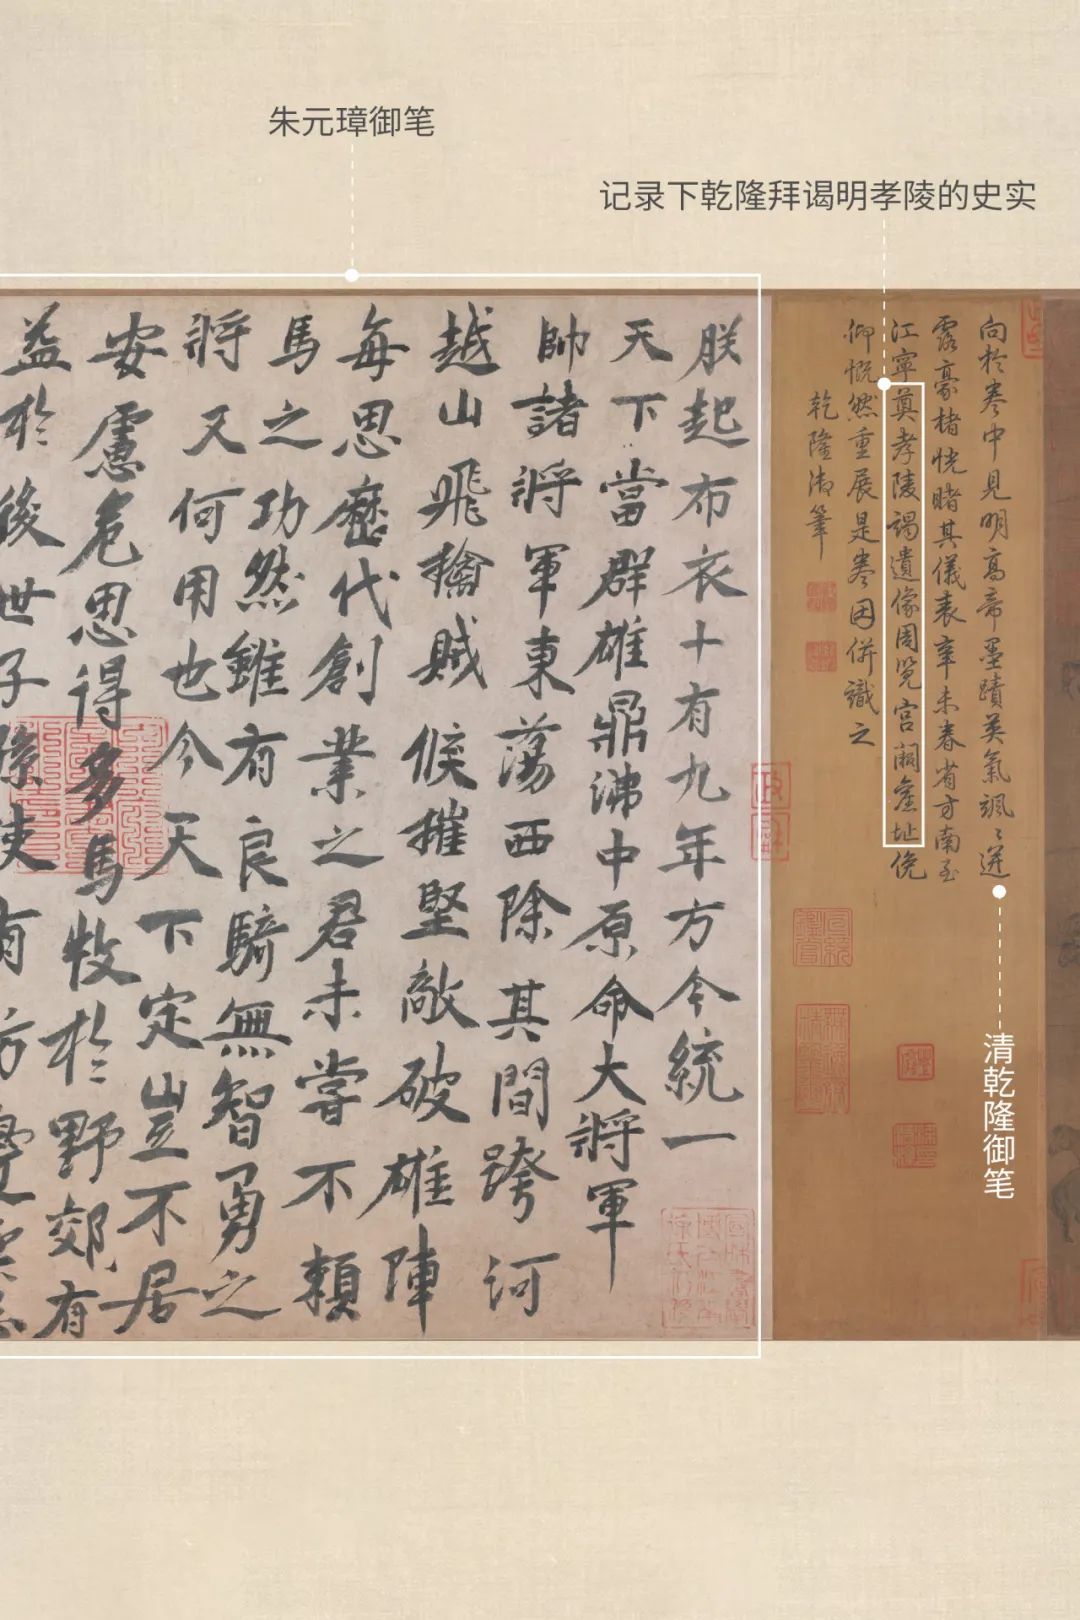 朱元璋御笔
记录下乾隆拜谒明孝陵的史实
向於卷中見明高帝墨蹟英氣颯〻迸
露豪楮恍睹其儀表辛未春省方南至
江寧奠孝陵謁遺像周覽宮闕舊址俛
仰慨然重展是卷因併識之
乾隆御筆
朕起布衣十有九年方今統一
天下當群雄鼎沸中原命大將軍
帥諸將軍東蕩西除其間跨河
越山飛擒賊候摧堅敵破雄陣
每思歷代創業之君未嘗不賴
馬之功然雖有良騎無智勇之
將又何用也今天下定豈不居
安慮危思得多馬牧於野郊有
益於後世子孫
清乾隆御笔